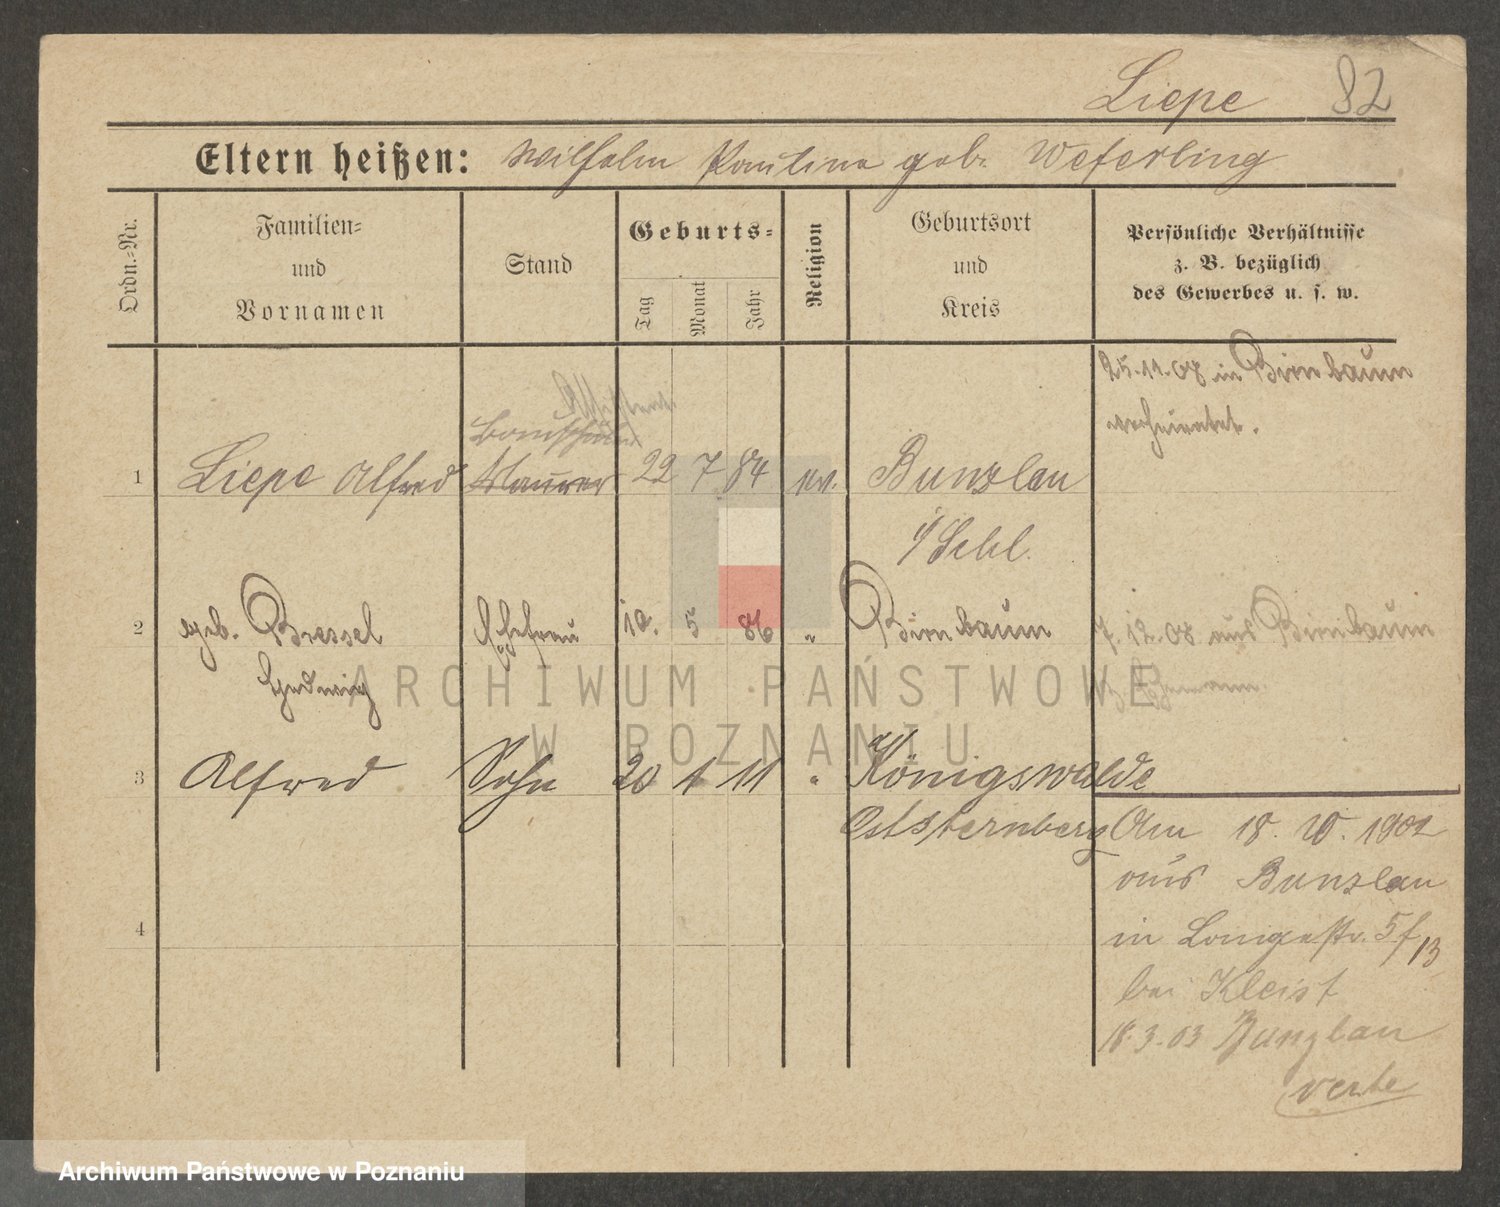 Liepe 82
Eltern heißen: Wilhelm Paulina geb. Weferling
Ordn.-Nr.
Familien-
und
Vornamen
Stand
Geburts-
Tag
Monat
Jahr
Religion
Geburtsort
und
Kreis
Persönliche Verhältnisse
z. B. bezüglich
des Gewerbes u. s. w.
25.11.08 in Birnbaum
verheiratet.
1 Liepe Alfred Maurer 22 7 84 ev. Bunzlau
i/Schl.
2 geb. Bressel Ehefrau 10. 5 86 " Birnbaum 7.12.08 aus Birnbaum
Hedwig
3 Alfred Sohn 20 1 11 " Königswalde
Oststernberg
Am 18. 10. 1902
aus Bunzlau
in Langestr. 5f
13
bei Kleist
18.3.03 Bunzlau
verte
4
ARCHIWUM PAŃSTWOWE
W POZNANIU
Archiwum Państwowe w Poznaniu